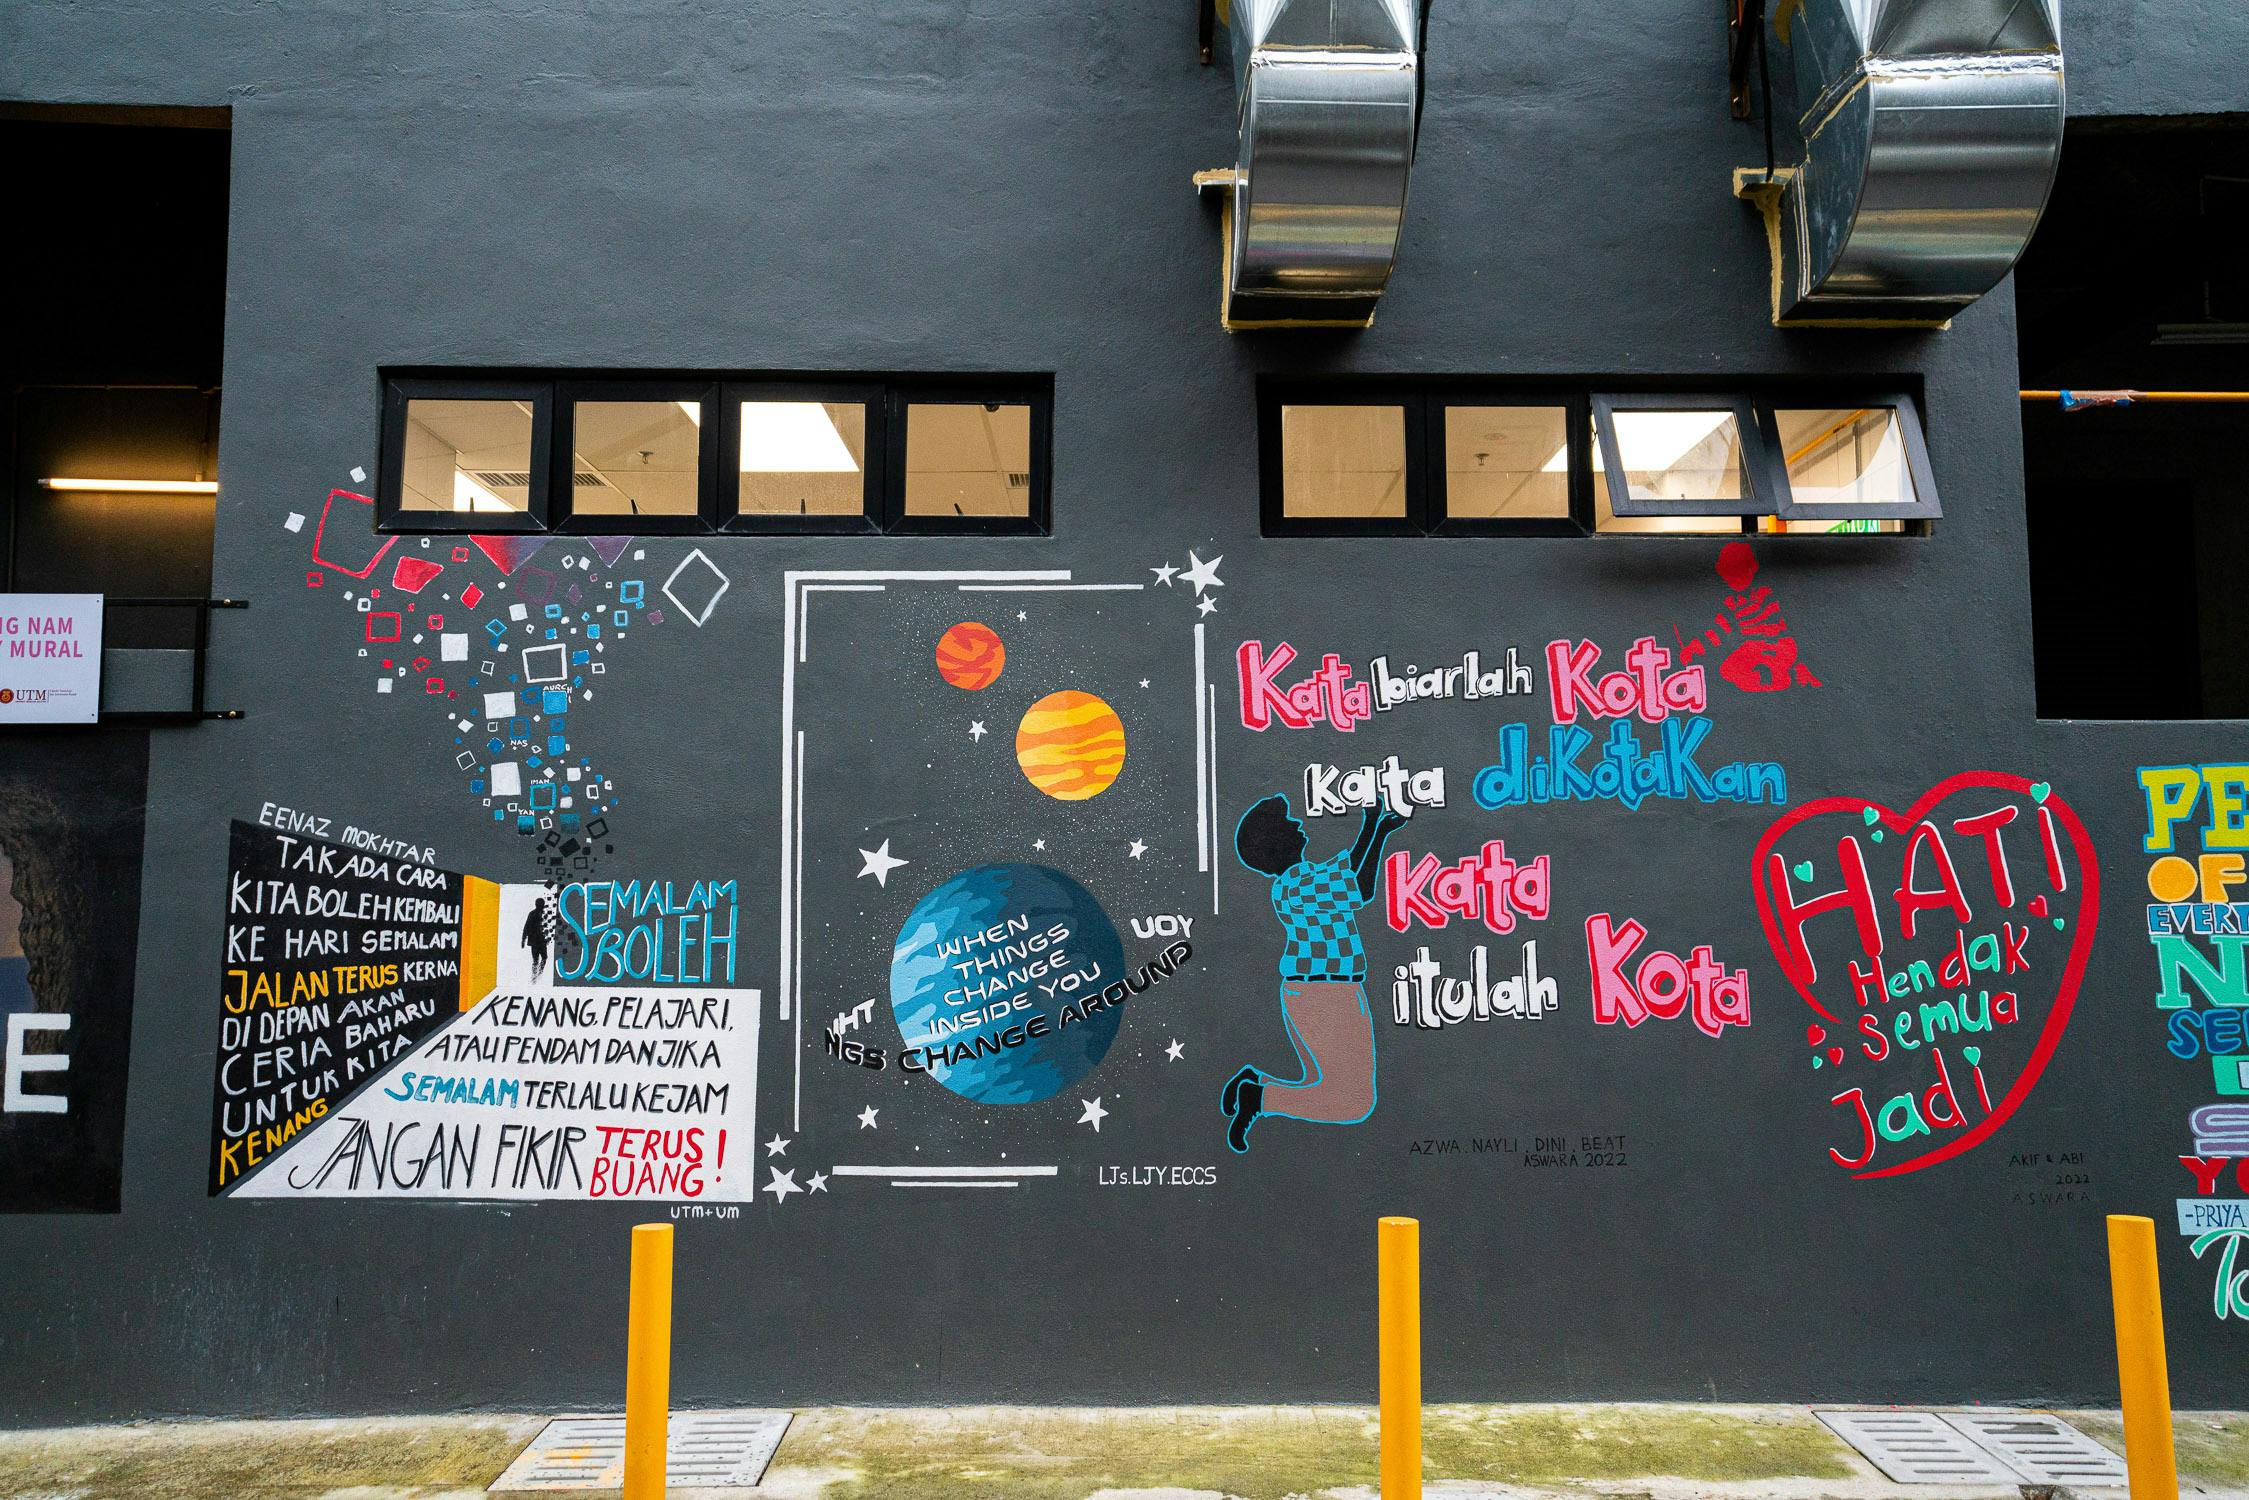 NG NAM
MURAL
UTM
E
EENAZ MOKHTAR
TAK ADA CARA
KITA BOLEH KEMBALI
KE HARI SEMALAM
JALAN TERUS KERNA
DI DEPAN AKAN
CERIA BAHARU
UNTUK KITA
KENANG
AURCH
NAS
IMAN
YAN
SEMALAM
BOLEH
KENANG, PELAJARI,
ATAU PENDAM DAN JIKA
SEMALAM TERLALU KEJAM
JANGAN FIKIR TERUS
BUANG!
UTM+UM
WHEN
THINGS
CHANGE
INSIDE YOU
NGS CHANGE AROUND
UOY
LJs.LJY.ECCS
Kata biarlah Kota
kata diKotaKan
Kata
itulah Kota
AZWA . NAYLI . DINI . BEAT
ASWARA 2022
HATI
Hendak
Semua
Jadi
AKIF & ABI
2022
ASWARA
PE
OF
EVERY
N
SE
-PRIYA